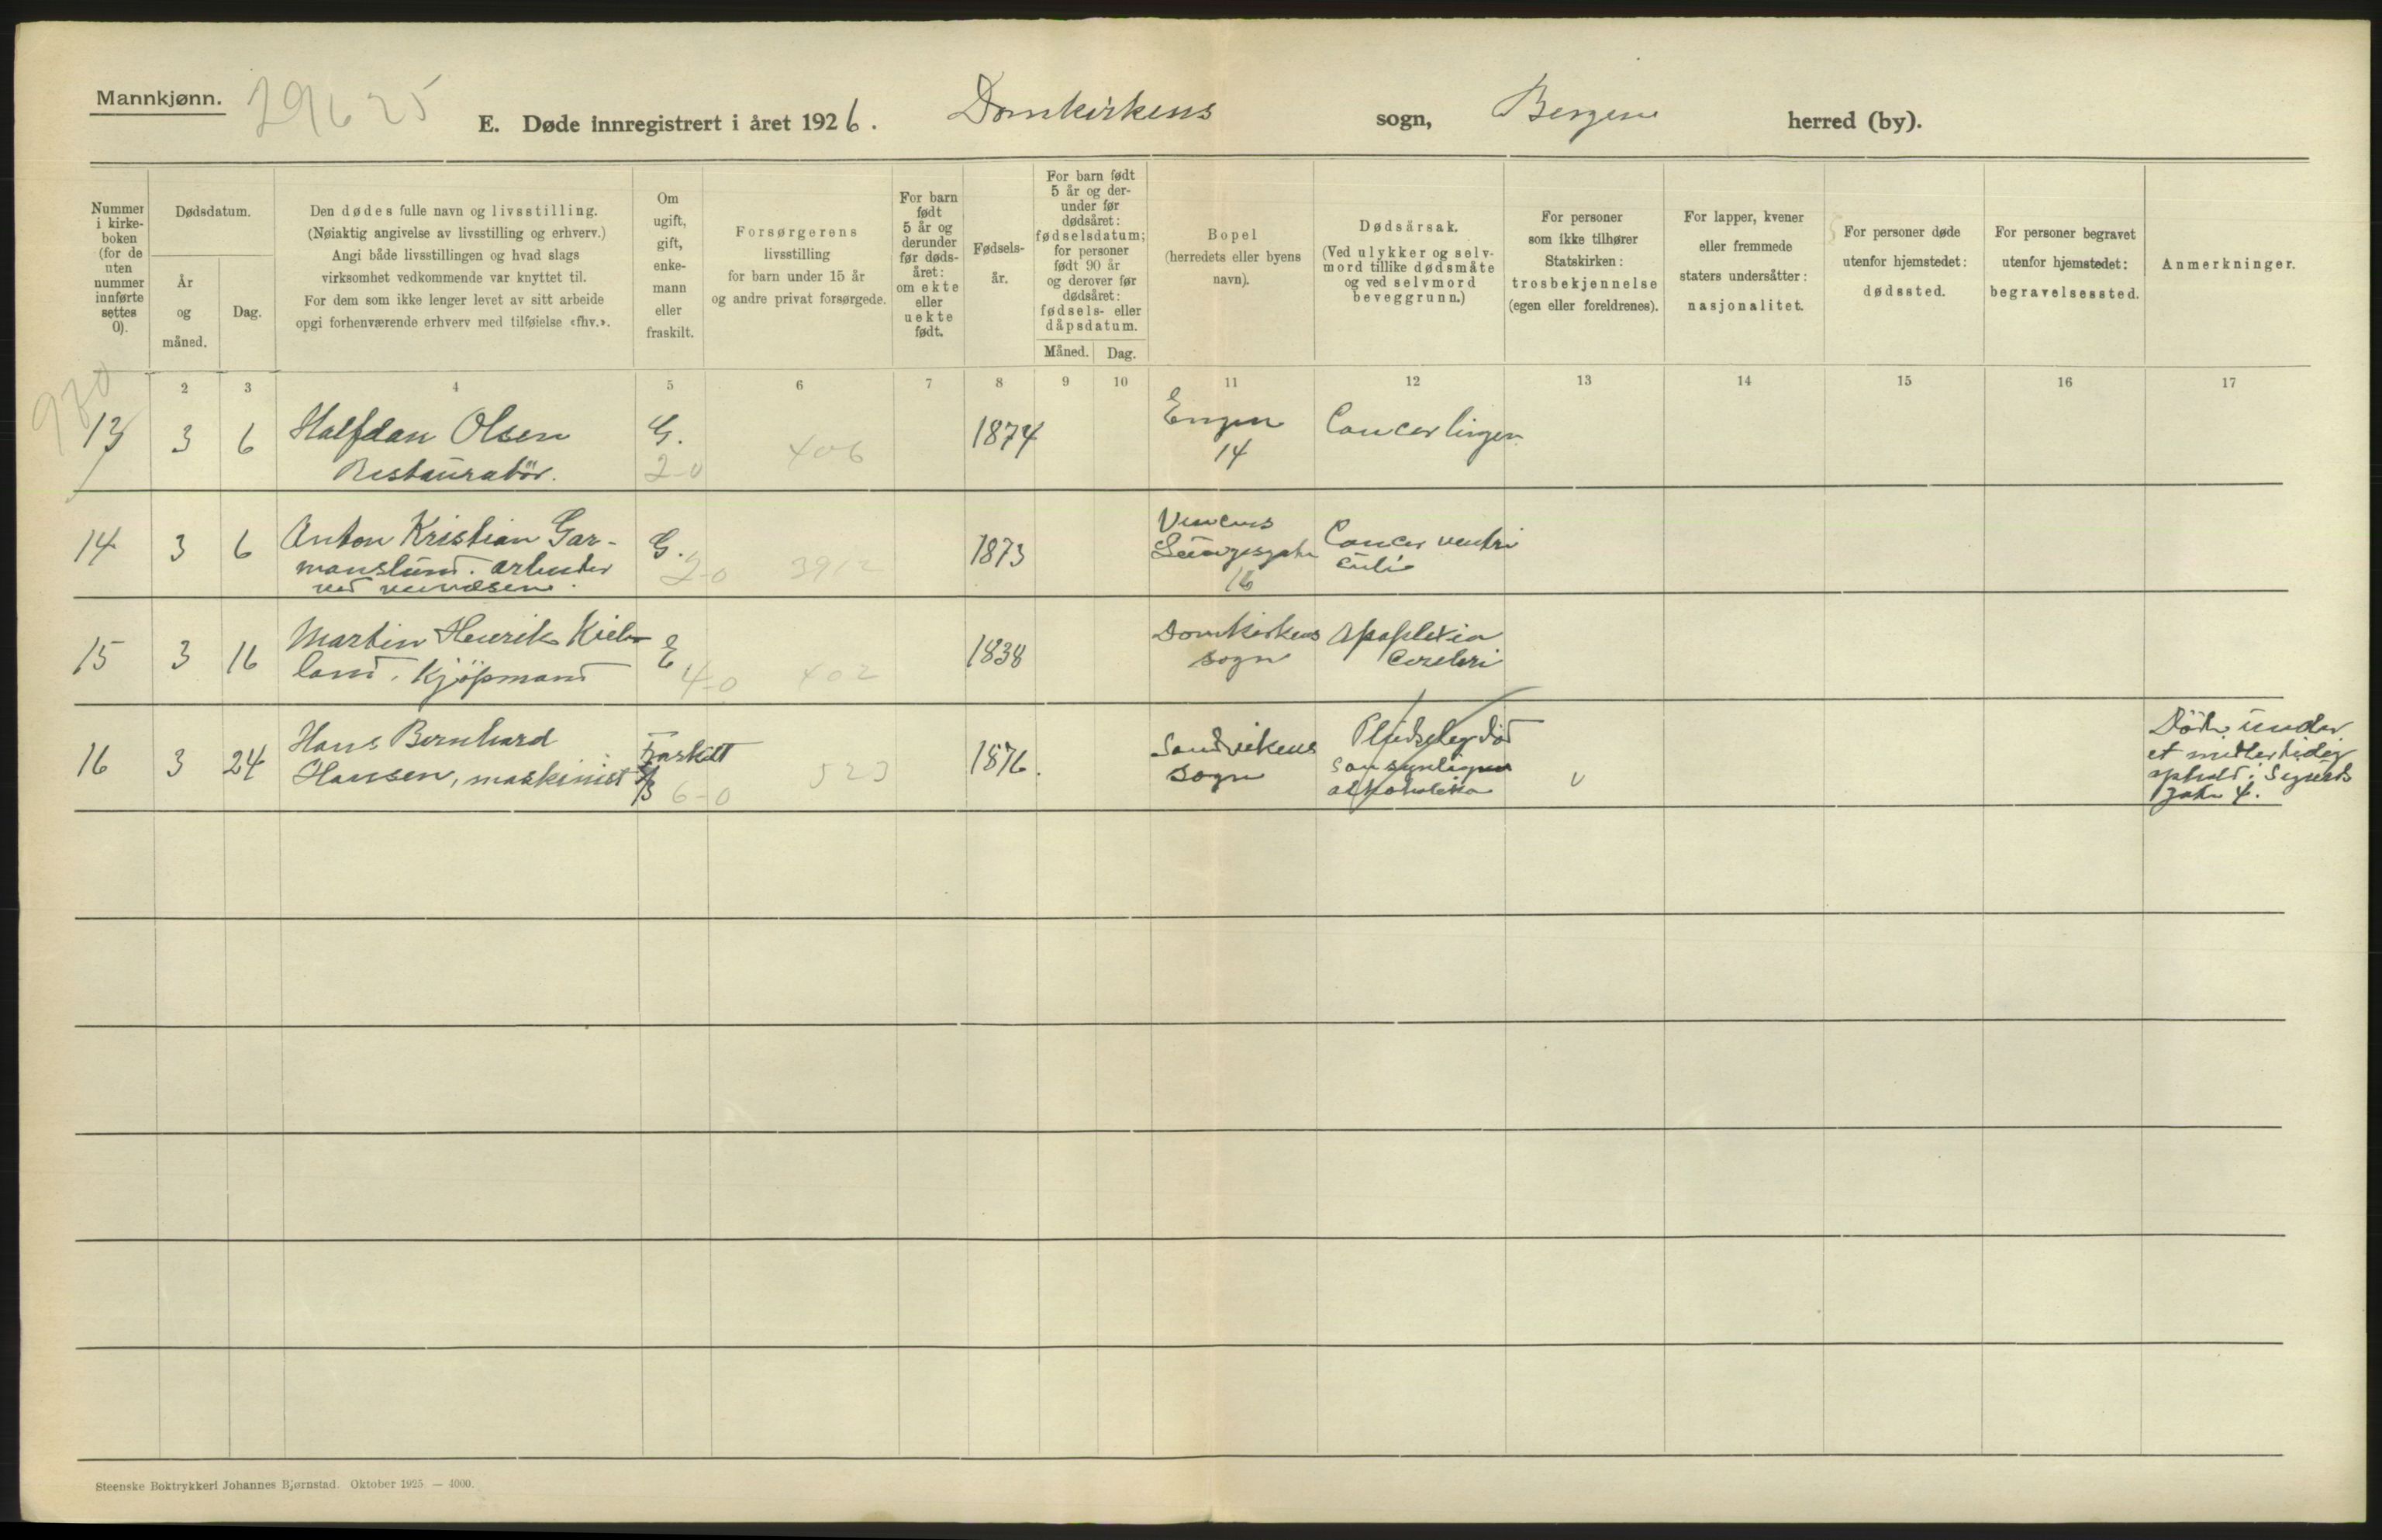 Mannkjønn.
29625
E. Døde innregistrert i året 1926.
Domkirkens sogn, Bergen herred (by).
Nummer i kirke- boken (for de uten nummer innførte settes 0).
Dødsdatum.
År og måned.
Dag.
Den dødes fulle navn og livsstilling.
(Nøiaktig angivelse av livsstilling og erhverv.)
Angi både livsstillingen og hvad slags
virksomhet vedkommende var knyttet til.
For dem som ikke lenger levet av sitt arbeide
opgi forhenværende erhverv med tilføielse «fhv.».
Om ugift, gift, enke- mann eller fraskilt.
Forsørgerens
livsstilling
for barn under 15 år
og andre privat forsørgede.
For barn født 5 år og derunder før døds- året: om ekte eller uekte født.
Fødsels- år.
For barn født 5 år og der- under før dødsåret: fødselsdatum; for personer født 90 år og derover før dødsåret: fødsels- eller dåpsdatum.
Måned. Dag.
Bopel
(herredets eller byens
navn).
Dødsårsak.
(Ved ulykker og selv-
mord tillike dødsmåte
og ved selvmord
beveggrunn.)
For personer
som ikke tilhører
Statskirken:
trosbekjennelse
(egen eller foreldrenes).
For lapper, kvener
eller fremmede
staters undersåtter:
nasjonalitet.
For personer døde
utenfor hjemstedet:
dødssted.
For personer begravet
utenfor hjemstedet:
begravelsessted.
Anmerkninger.
930
2 3 4 5 6 7 8 9 10 11 12 13 14 15 16 17
13 3 6 Halfdan Olsen G. 406 1874 Engen Cancer lingen
Restauratör. 2-0 14
14 3 6 Anton Kristian Gar- G. 3912 1873
manslund. arbeider 2-0
ved veivæsen.
Cancer ventri
culi
16
15 3 16 Martin Henrik Kiel- E 402 1838 Domkirkens Apoplexia
land. Kjöpmand 4-0 sogn cerebri
16 3 24 Hans Bernhard Fraskilt 523 1876. Sandvikens Pludselig död
Hansen, maskinist 6-0 sogn sansynligvis
v
Döde under
et midlertidig
ophold i Sigurds
gate 4.
Steenske Boktrykkeri Johannes Bjørnstad. Oktober 1925. — 4000.